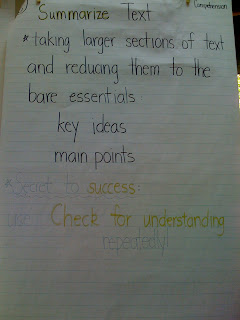 Comprehension
Summarize Text
* taking larger sections of text
and reducing them to the
bare essentials
key ideas
main points
* Secret to success:
use Check for understanding
repeatedly!